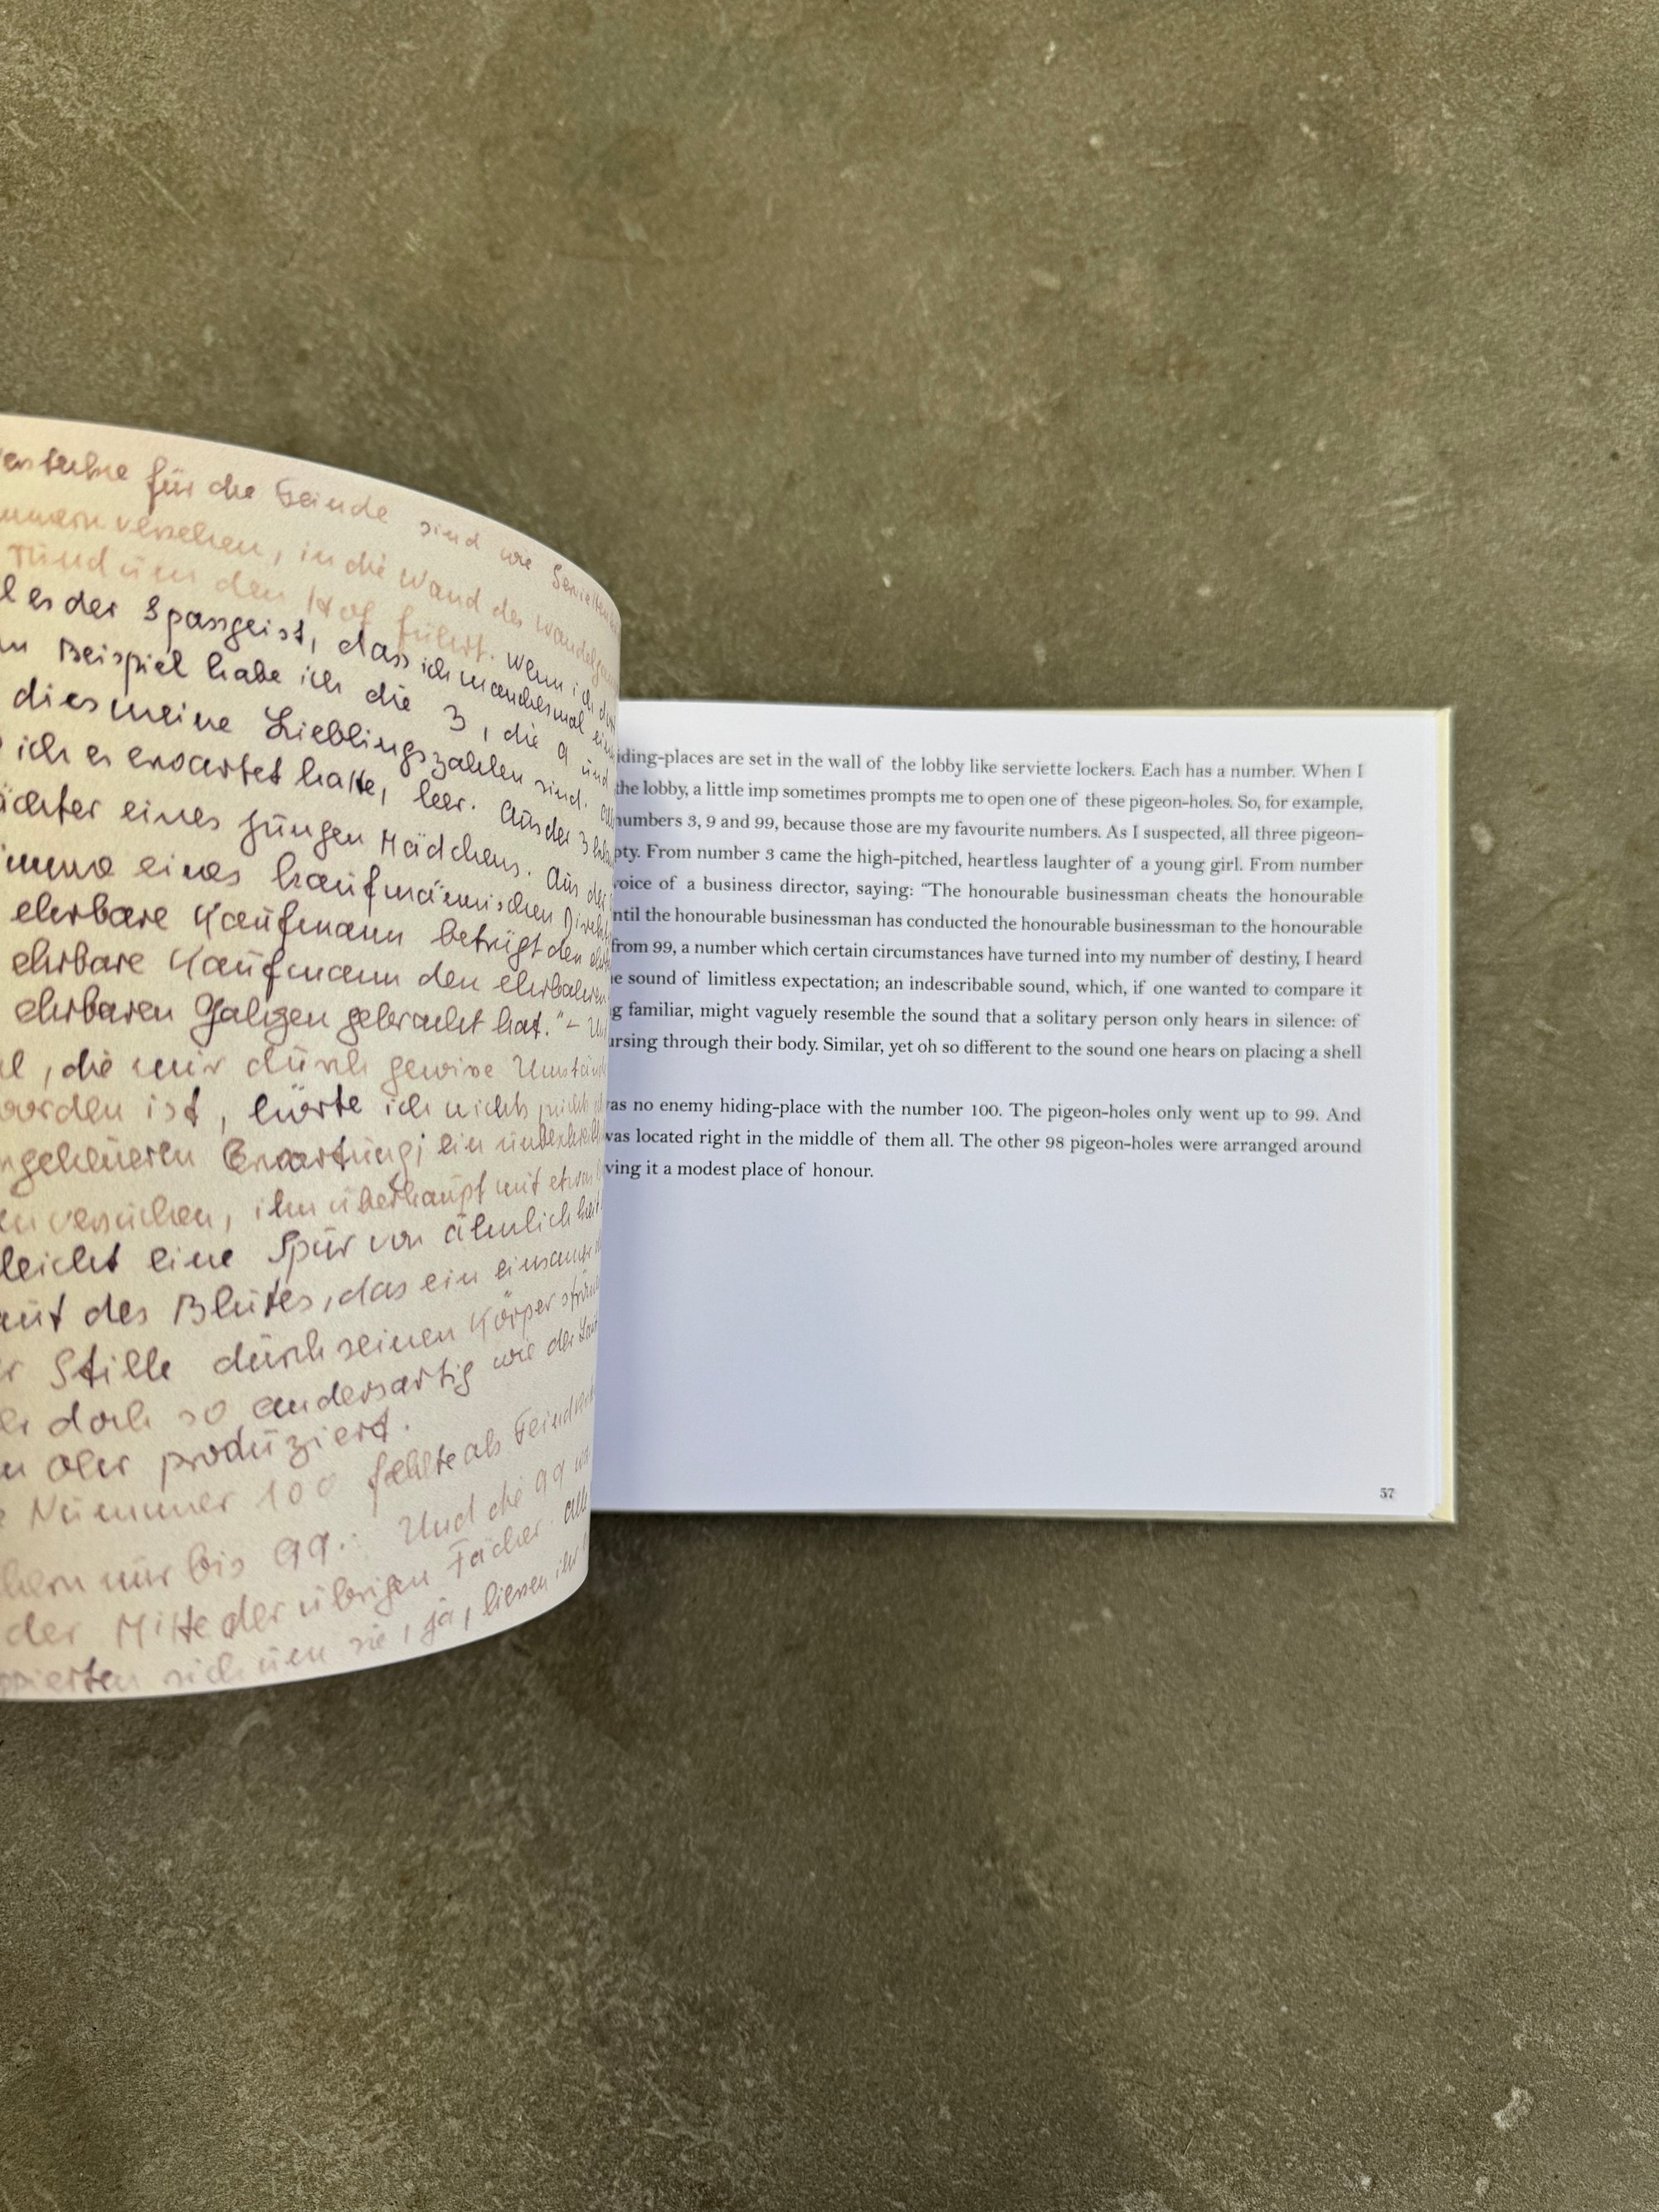 für die Feinde sind wie
versehen, in die Wand des
rund um den Hof führt. Wenn ich
es der Spassgeist, dass ich manchesmal
Beispiel habe ich die 3, die 9 und
dies meine Lieblingszahlen sind.
ich es erwartet hatte, leer. Aus der 3
eines jungen Mädchens. Aus der
eines kaufmännischen
ehrbare Kaufmann betrügt den
ehrbare Kaufmann den ehrbaren
ehrbaren Galgen gebracht hat." –
, die mir durch gewisse
worden ist, hörte ich nichts
Erwartung; ein
versuchen, ihn überhaupt mit etwas
leicht eine Spur von ähnlichkeit
des Blutes, das ein einsamer
Stille durch seinen Körper
doch so andersartig wie der
Ohr produziert.
Nummer 100 fehlte als
nur bis 99. Und die 99
der Mitte der übrigen Fächer. alle
sich um sie, ja, liessen ihr
iding-places are set in the wall of the lobby like serviette lockers. Each has a number. When I
the lobby, a little imp sometimes prompts me to open one of these pigeon-holes. So, for example,
numbers 3, 9 and 99, because those are my favourite numbers. As I suspected, all three pigeon-
pty. From number 3 came the high-pitched, heartless laughter of a young girl. From number
voice of a business director, saying: “The honourable businessman cheats the honourable
ntil the honourable businessman has conducted the honourable businessman to the honourable
from 99, a number which certain circumstances have turned into my number of destiny, I heard
e sound of limitless expectation; an indescribable sound, which, if one wanted to compare it
g familiar, might vaguely resemble the sound that a solitary person only hears in silence: of
ursing through their body. Similar, yet oh so different to the sound one hears on placing a shell
as no enemy hiding-place with the number 100. The pigeon-holes only went up to 99. And
was located right in the middle of them all. The other 98 pigeon-holes were arranged around
ving it a modest place of honour.
57